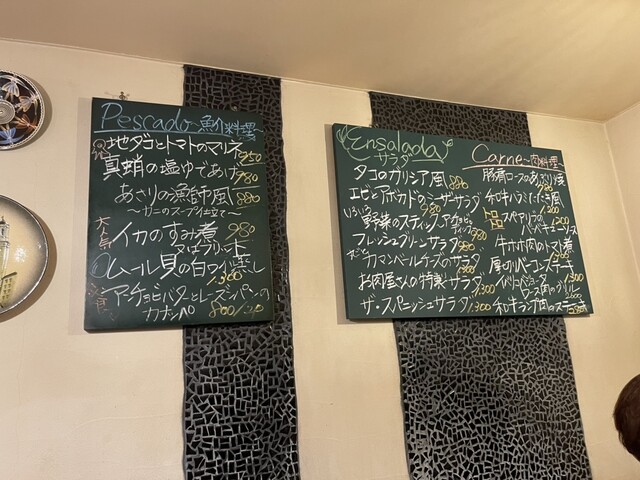 Pescado~魚介料理
地ダコとトマトのマリネ 950
真蛸の塩ゆであげ 780
あさりの漁師風 880
~カニのスープ仕立て~
大人気 イカのすみ煮 980
又はフリート
ムール貝の白ワイン蒸し
1,300
アンチョビバターとレーズンパンの
カナッペ 800
Ensalada
サラダ
タコのガリシア風 880
エビとアボカドのシーザーサラダ
980
野菜のスティック
フレッシュグリーンサラダ 980
カマンベールチーズのサラダ
1,300
お肉屋さんの特製サラダ
1,300
ザ・スパニッシュサラダ 1,300
Carne~肉料理
豚肩ロースのあぶり焼
780
和牛ハラミたたき風
1,200
スペアリブ 1,200
バーベキューソース
牛ホホ肉のトマト煮
厚切りベーコンステーキ
イベリコベジョータ
ロース肉のグリル